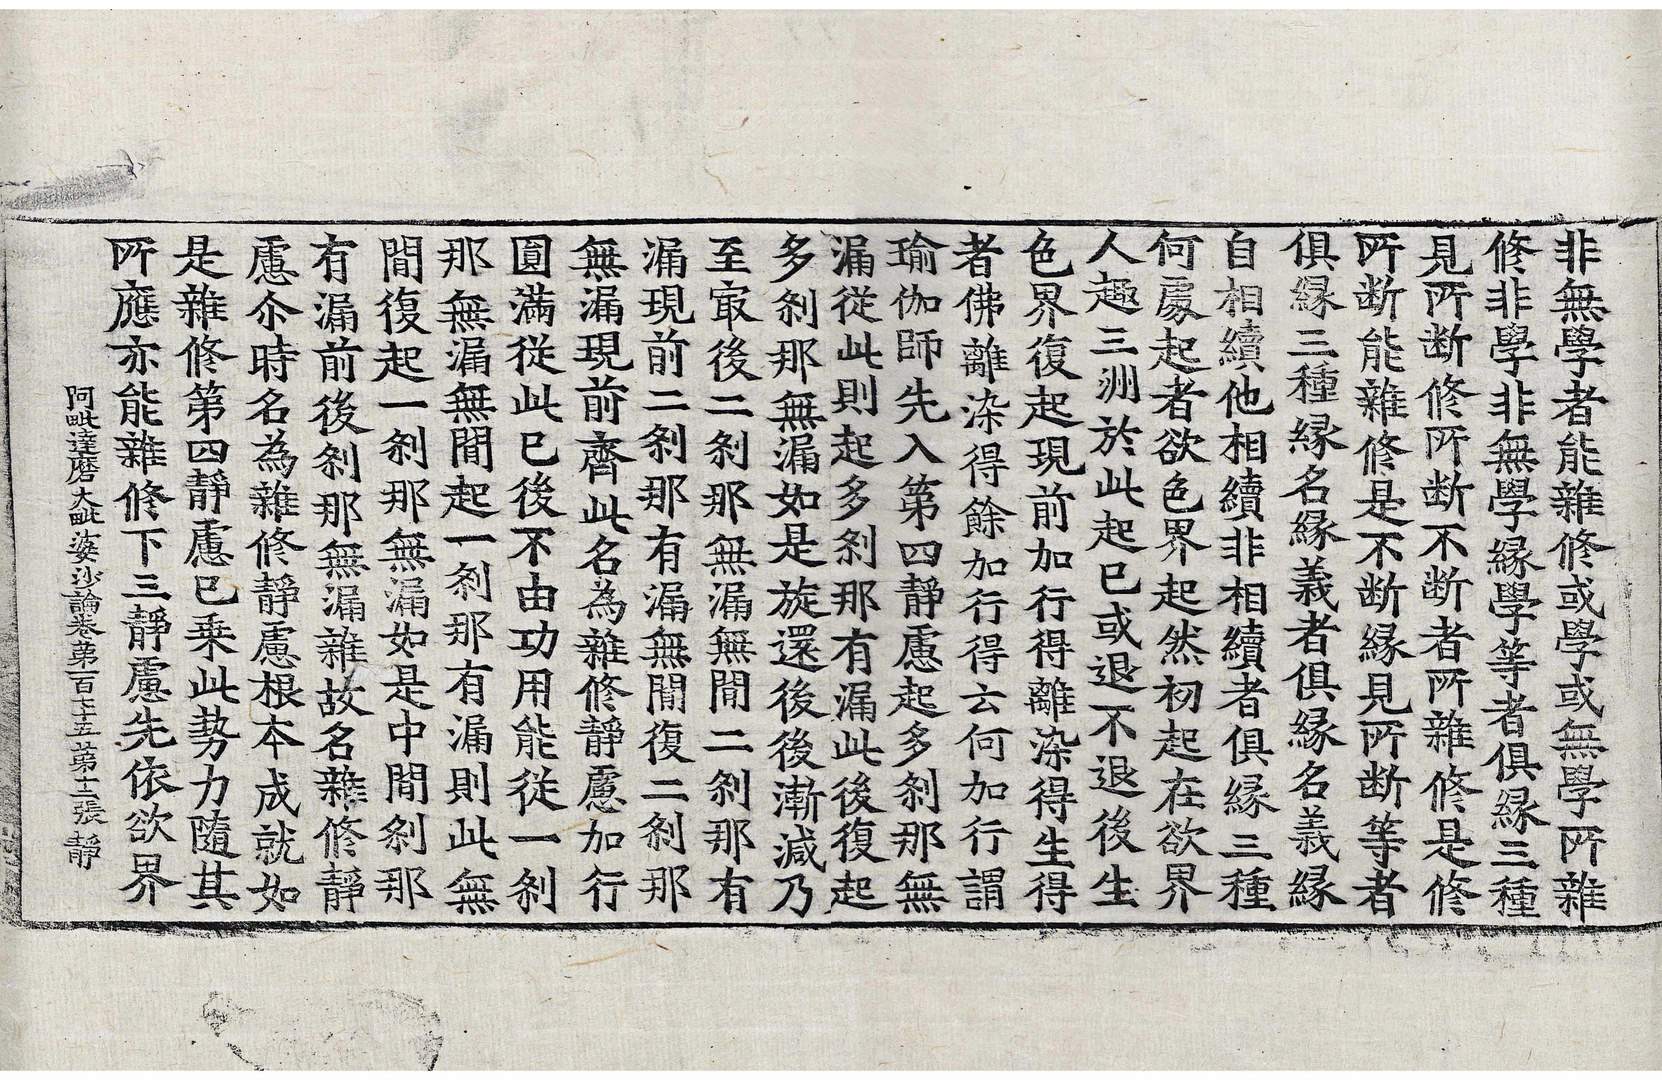 非無學者能雜修或學或無學所雜
修非學非無學緣學等者俱緣三種
見所断修所断不断者所雜修是修
所断能雜修是不断緣見所断等者
俱緣三種緣名緣義者俱緣名義緣
自相續他相續非相續者俱緣三種
何處起者欲色界起然初起在欲界
人趣三洲於此起已或退不退後生
色界復起現前加行得離染得生得
者佛離染得餘加行得云何加行謂
瑜伽師先入第四靜慮起多刹那無
漏從此則起多刹那有漏此後復起
多刹那無漏如是旋還後後漸減乃
至㝡後二刹那無漏無閒二刹那有
漏現前二刹那有漏無閒復二刹那
無漏現前齊此名為雜修靜慮加行
圓滿從此已後不由功用能從一刹
那無漏無閒起一刹那有漏則此無
閒復起一刹那無漏如是中閒刹那
有漏前後刹那無漏雜故名雜修靜
慮尒時名為雜修靜慮根本成就如
是雜修第四靜慮已乗此勢力隨其
所應亦能雜修下三靜慮先依欲界
阿毗達磨大毗婆沙論卷第一百七十五 第十二張 靜